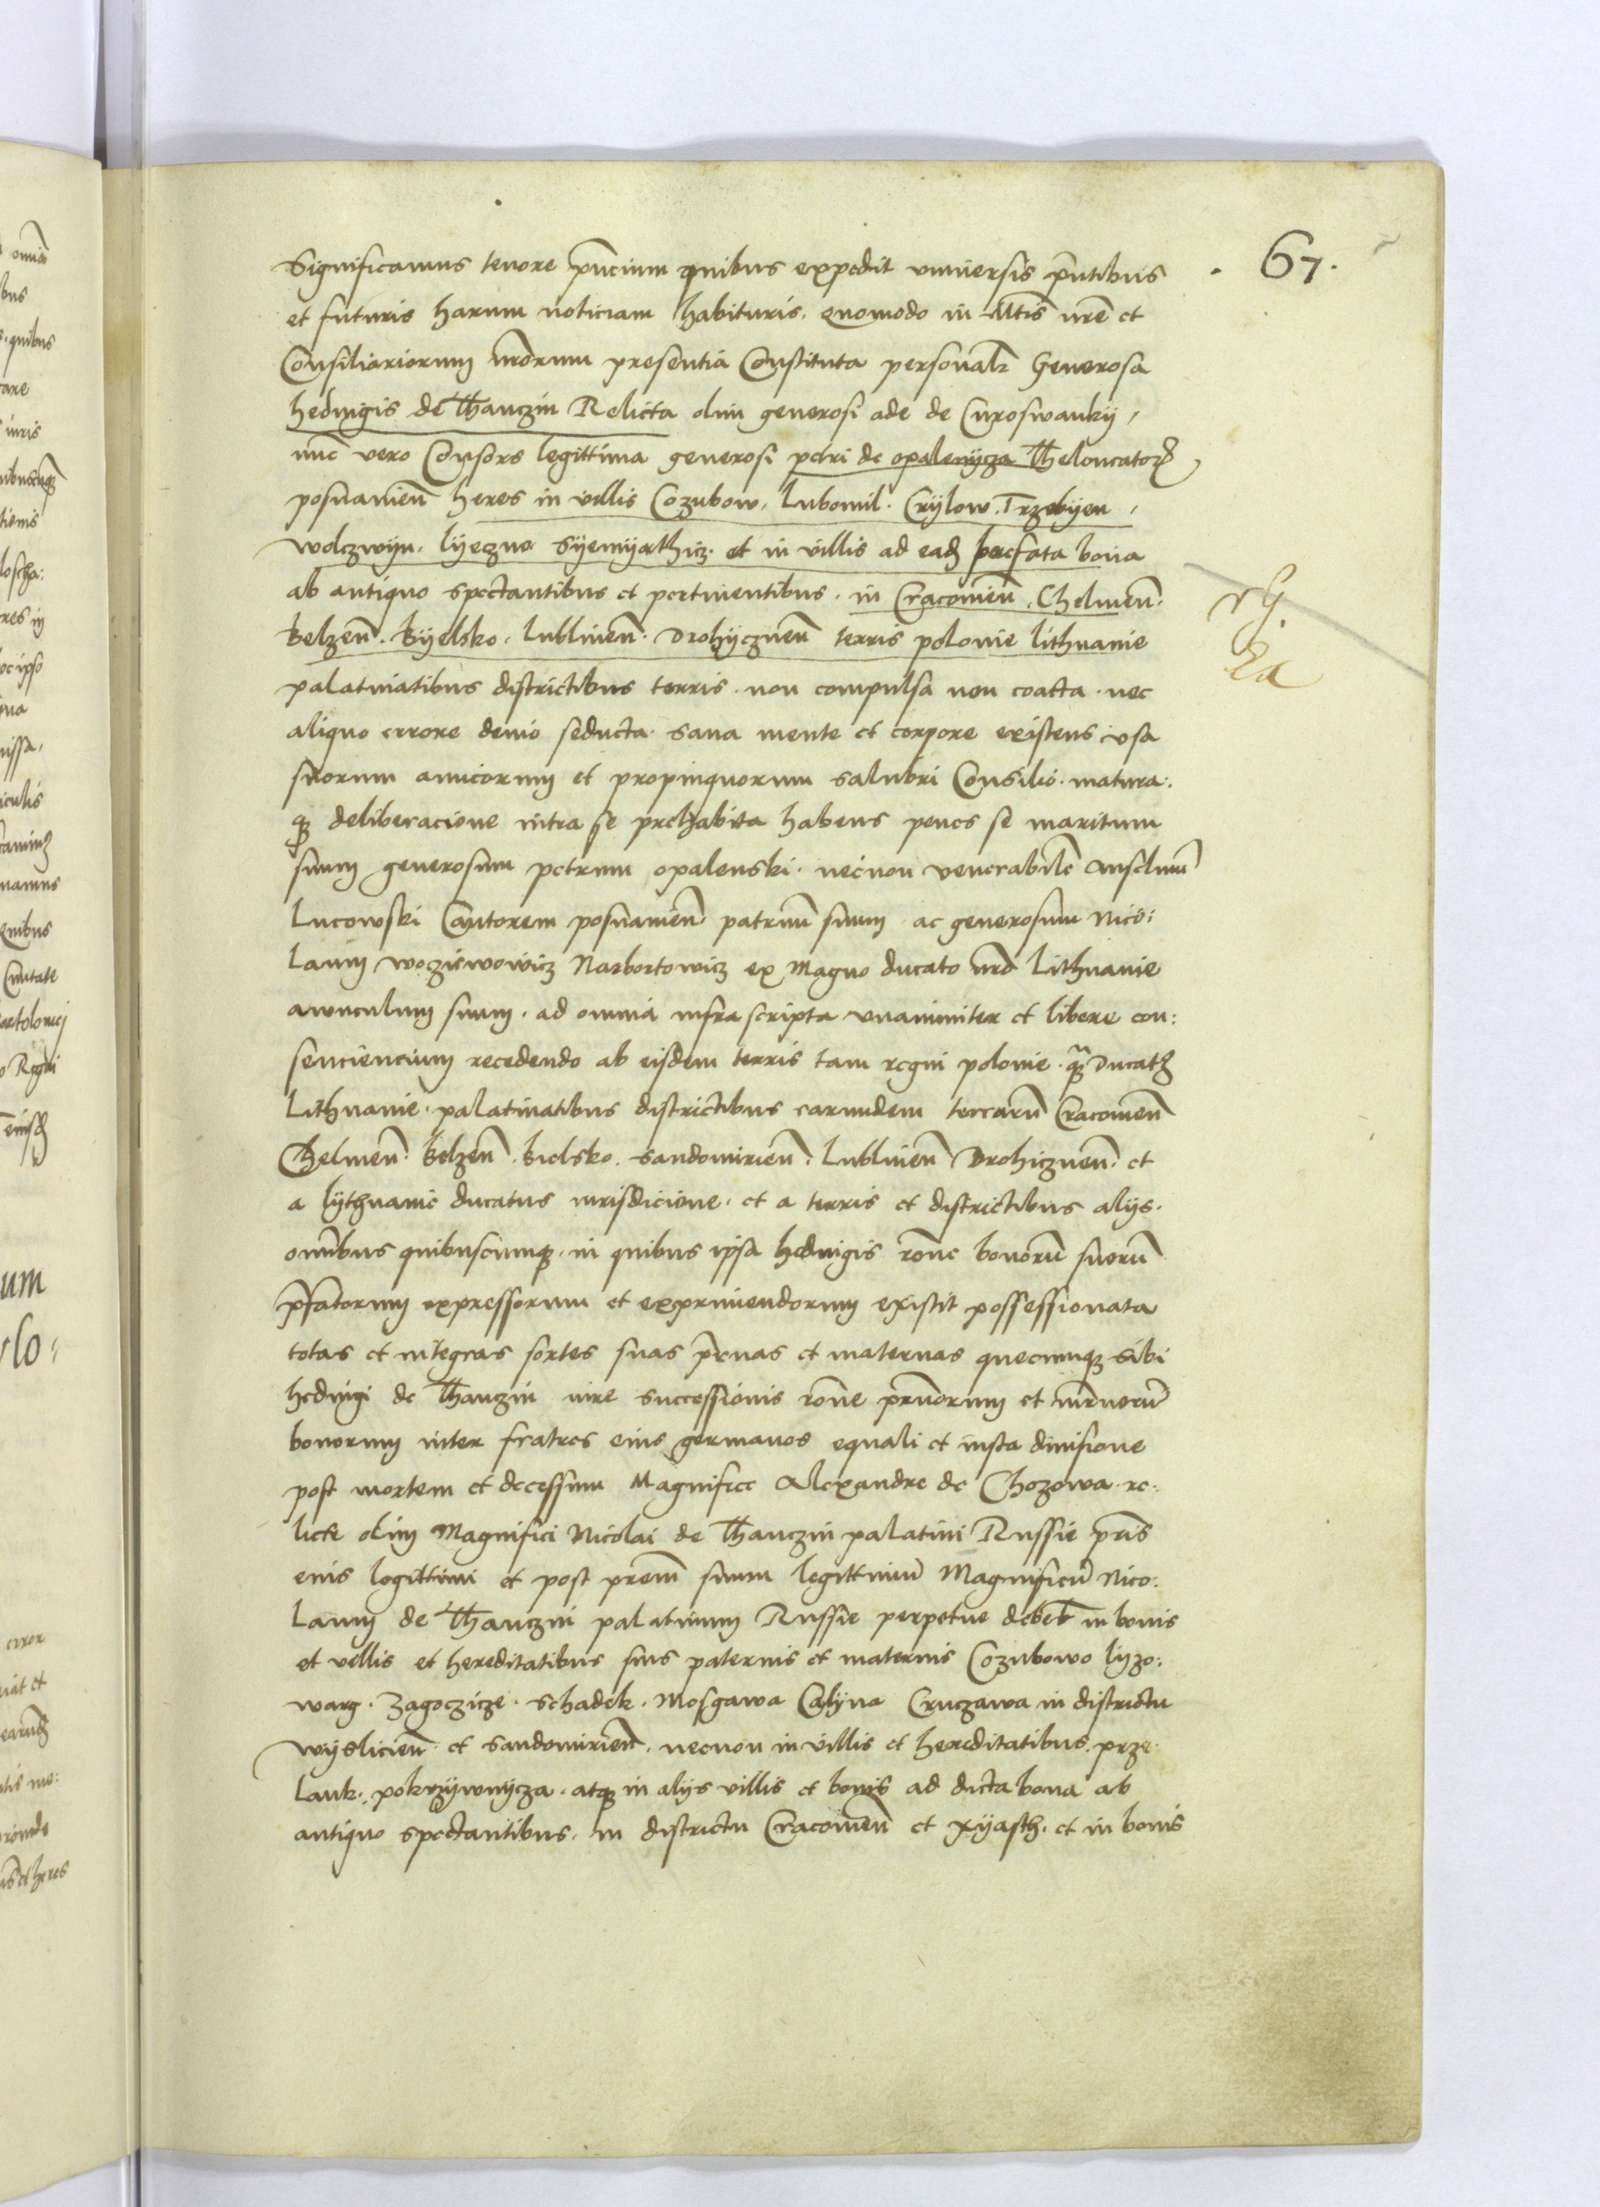 67.
Significamus tenore pñcium quibus expedit universis p̃ntibus
et futuris harum noticiam habituris. quomodo in Mtis nr̃e et
Consiliariorum nr̃orum presentia Constituta personalr̃ Generosa
hedvigis de Thanczin Relicta olim generosi ade de Curoswanky,
nũc vero Consors legittima generosi petri de opalenycza Theloneatorꝭ
posnanieñ heres in villis Cozubow. Lubomil. Crylow. Trzebyen,
wolczwyn. lyeczna Syemyathicz. et in villis ad eadꝫ praefata bona
ab antiquo spectantibus et pertinentibus. in Cracovieñ. Chelmeñ.
Belzeñ. Byelsko. Lublineñ. Drohyczneñ terris polonie lithvanie
palatinatibus districtibus terris. non compulsa non coacta. nec
aliquo errore devio seducta. sana mente et corpore existens usa
suorum amicorum et propinquorum salubri Consilio. matura:
qꝫ deliberacione intra se prehabita habens penes se maritum
suum generosum petrum opalenski. necnon venerabilẽ anselmũ
Lucowski Cantorem posnanieñ. patruũ suum ac generosum Nico:
Laum Woyziewowicz Narbortowicz ex Magno ducato nr̃o Lithvanie
avunculum suum. ad omnia infra scripta unanimiter et libere con:
senciencium recedendo ab eisdem terris tam regni polonie. qꝫ̃ Ducatꝫ
Lithvanie. palatinatibus districtibus earundem terrarũ Cracovieñ
Chelmeñ. Belzeñ. Bielsko. Sandomirieñ. Lublineñ Drohiczneñ. et
a lythvanie ducatus iurisdicione. et a terris et districtibus alijs.
omĩbus quibuscumqꝫ. in quibus ipsa hedvigis rõne bonorũ suorũ
p̃fatorum expressorum et exprimendorum existit possessionata
totas et integras sortes suas p̃rnas et maternas quecumqꝫ sibi
hedvigi de Thanczin iure successionis rõne pr̃norum et mr̃norũ
bonorum inter fratres eius germanos equali et iusta divisione
post mortem et decessum Magnifice Alexandre de Chozowa re:
licte olim Magnifici Nicolai de Thanczin palatini Russie pr̃is
eius legittimi et post pr̃em suum legittimũ Magnificũ Nico:
Laum de Thanczin palatinum Russie perpetue debet̃ in bonis
et villis et hereditatibus suis paternis et maternis Cozubowo lyzo:
warg. Zagoczicze. Schadek. Mosgawa Calyna Cruczawa in districtu
wyslicieñ. et Sandomirieñ. necnon in villis et hereditatibus. prze
Lauk. pokrzywnycza. atqꝫ in alijs villis et bonis ad dicta bona ab
antiquo spectantibus. in districtu Cracovieñ et Xyasth. et in bonis